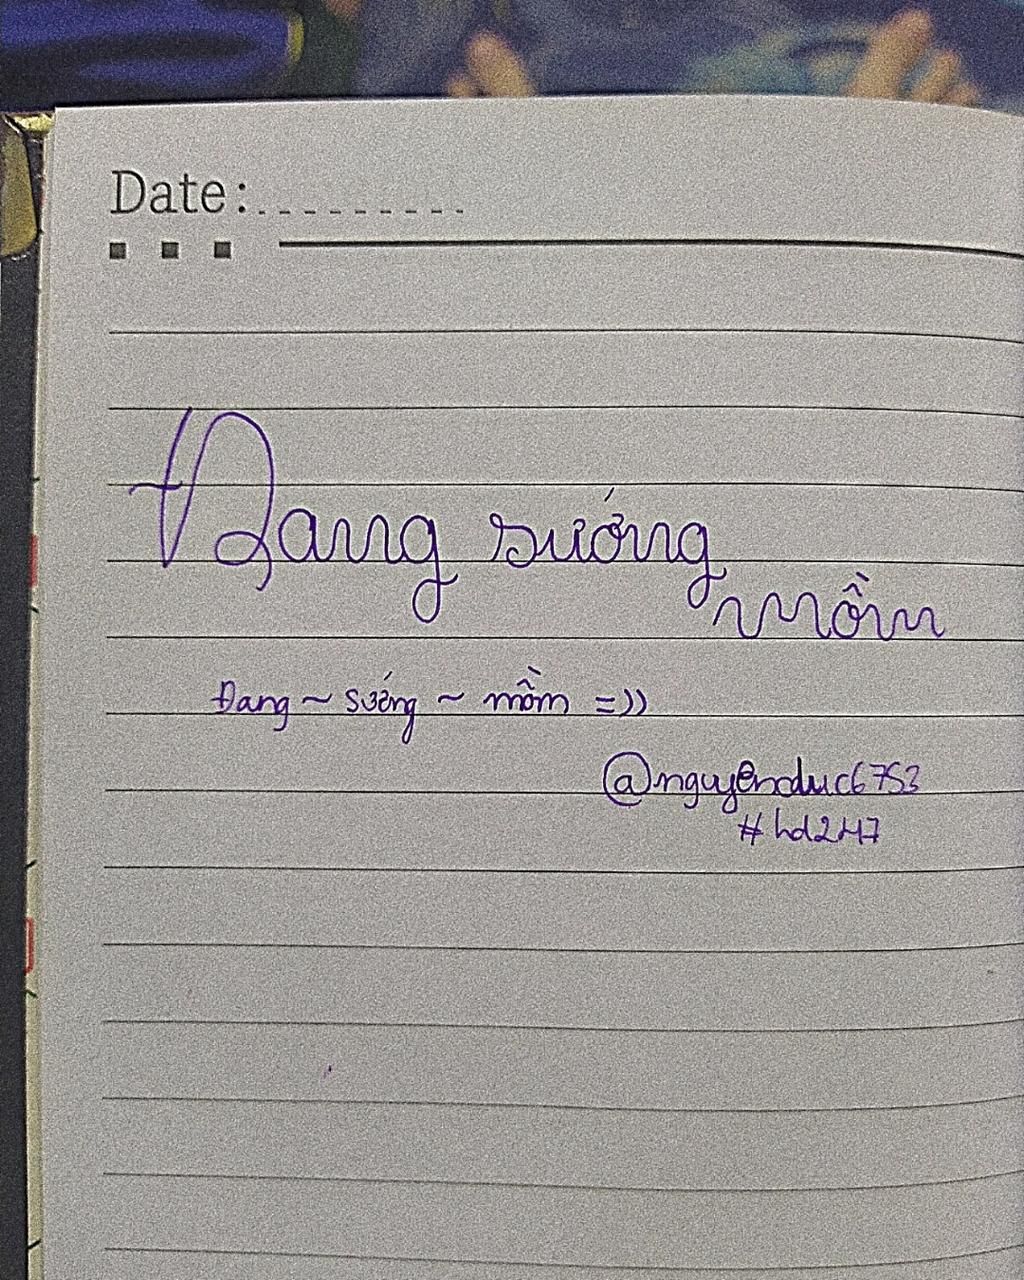 Date:..........
Đang sướng
mồm
Đang ~ sướng ~ mồm =))
@nguyenduc6753
#hd247